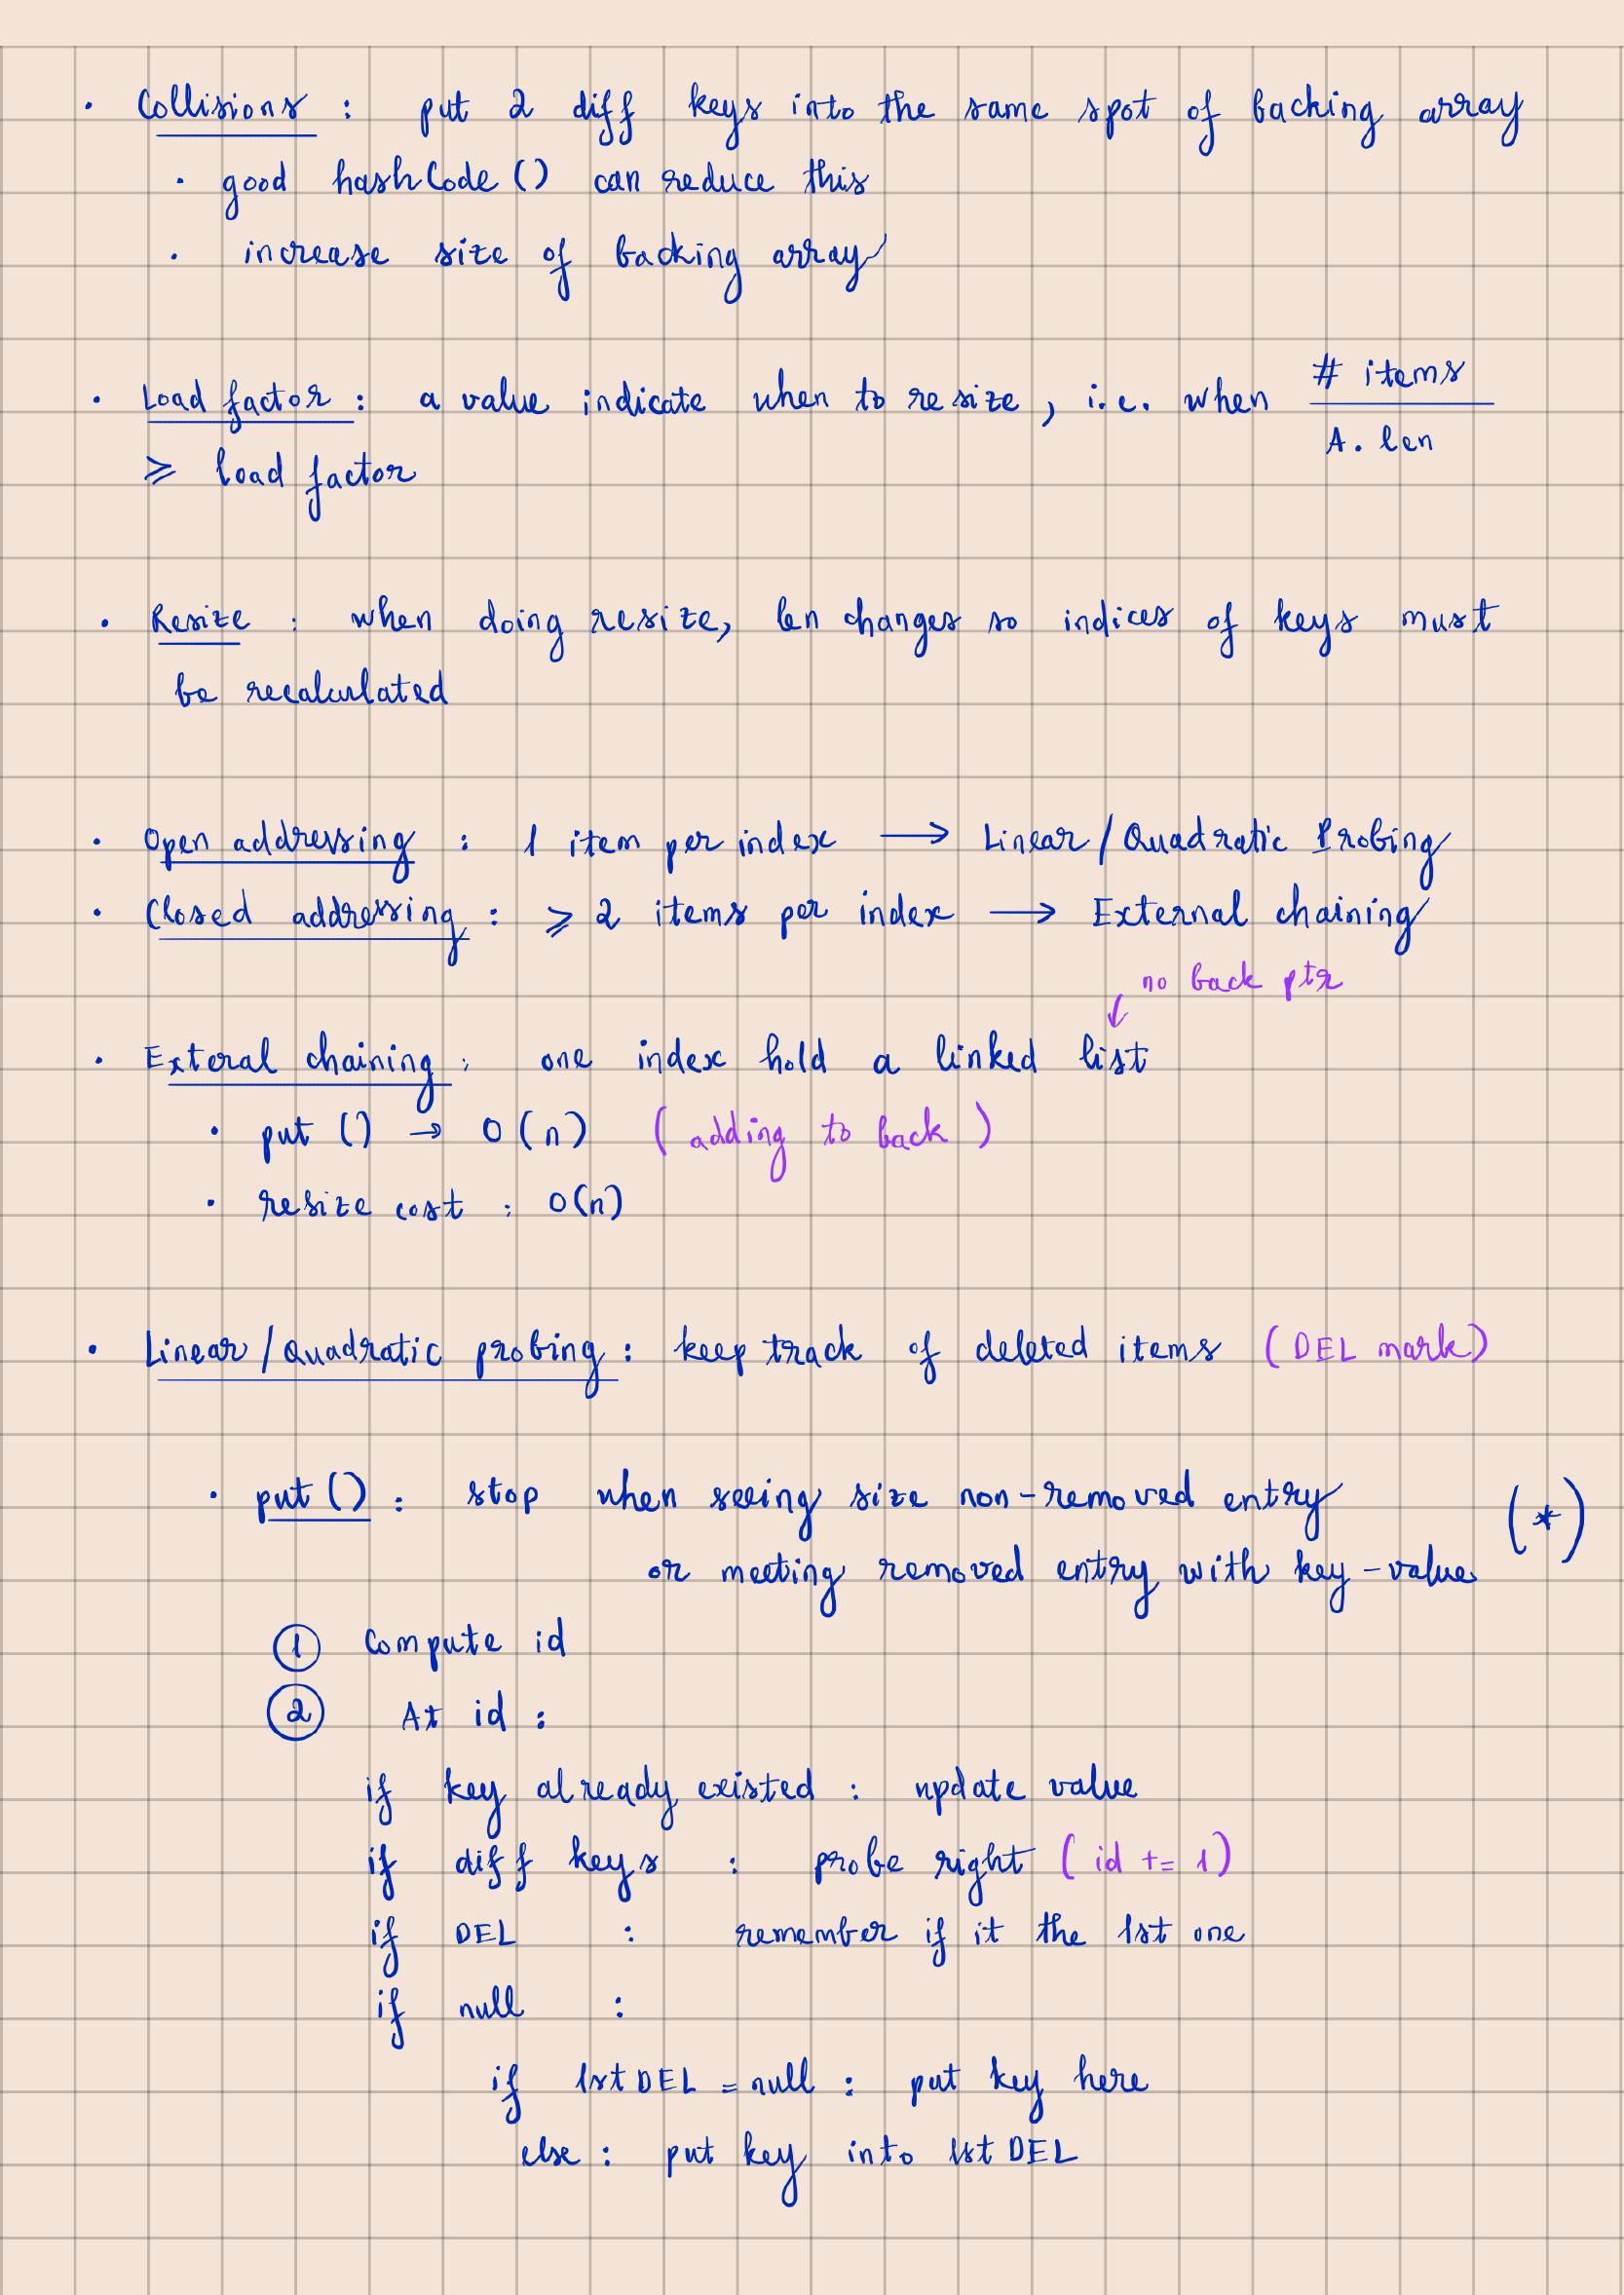 • Collisions : put 2 diff keys into the same spot of backing array
• good hashCode () can reduce this
• increase size of backing array
• Load factor : a value indicate when to resize , i.e. when # items / A. len
⩾ load factor
• Resize : when doing resize, len changes so indices of keys must
be recalculated
• Open addressing : 1 item per index → Linear / Quadratic Probing
• Closed addressing : ⩾ 2 items per index → External chaining
no back ptr
• Exteral chaining : one index hold a linked list
• put () → O(n) ( adding to back )
• resize cost : O(n)
• Linear / Quadratic probing : keep track of deleted items (DEL mark)
• put () : stop when seeing size non-removed entry (*)
or meeting removed entry with key-value
① Compute id
② At id :
if key already existed : update value
if diff keys : probe right ( id += 1)
if DEL : remember if it the 1st one
if null :
if 1st DEL = null : put key here
else : put key into 1st DEL